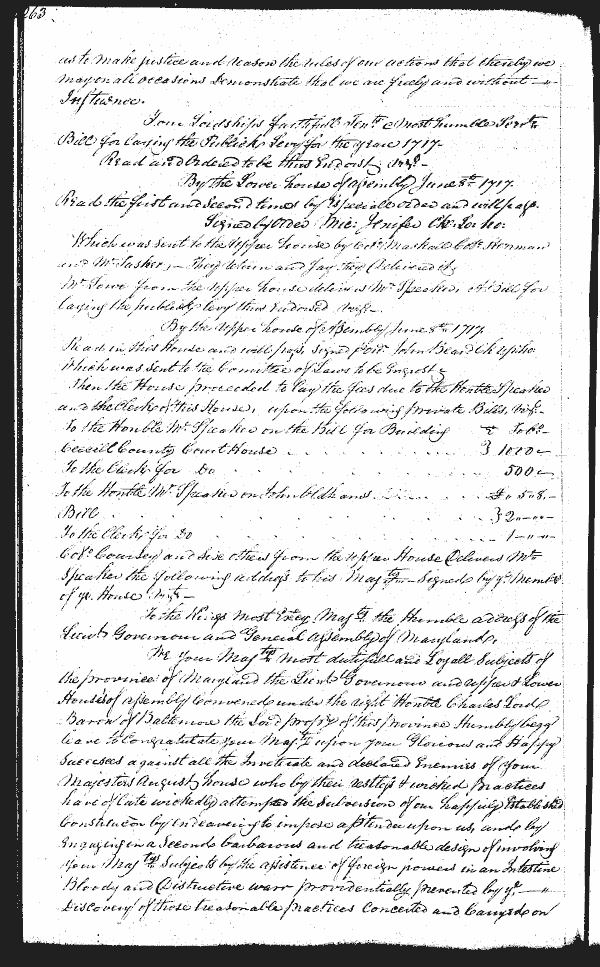 263
us to make justice and reason the rules of our actions that thereby we
may on all occasions Demonstrate that we are freely and without
Influence.
Your Lordships faithfull Tents & Most humble Servts
Bill for laying the Publick Levy for the year 1717
Read and Ordered to be thus Endorst; Vizt
By the Lower house of assembly June 8th 1717.
Read the first and second times by Especiale order and will pass.
Signed by Order Mic: Jenifer Clk. Lo: ho:
Which was sent to the Upper house by Colo. Mackall Colo.
and Mr Tasker, They return and say they Delivered it,
Mr Lowe from the upper house delivers Mr Speaker, A Bill for
laying the publick levy thus Endorsed Vizt.
By the Upper house of Assembly June 8th 1717
Read in this House and will pass, signed p Ordr. John Beard Cl. up. ho
Which was sent to the Comittee of Laws to be Engrost
Then the House proceeded to Lay the fees due to the Honble Speaker
and the Clerk of this House, upon the following Private Bills, Vizt.
To the Honble Mr Speaker on the Bill for Building } To bo.
Cecill County Court House } 1000
To the Clerk for Do 500
To the Honble Mr Speaker on John Oldhams
Bill } 2
To the Clerk for Do 1
Colo. Coursey and five others from the upper House Delivers Mr
Speaker the following address to his Majty Signed by ye Membs
of ye House Vizt
To the Kings most Excy Majty the Humble address of the
Lieut Governour and General Assembly of Maryland,
We your Majtys most dutifull and Loyall Subjects of
the province of Maryland the Lieut Governour and upper & Lower
Houses of assembly Convened under the right Honble Charles Lord
Baron of Baltemore the Lord propry of this province Humbly begg
leave to Congratulate your Majty upon your Glorious and Happy
Successes against all the Inveterate and declared Enemies of your
Majesties August house who by their restless & wicked Practices
have of late wickedly attempted the Subversion of our happily Established
Constitucon by endeavering to impose a ptender upon us, and by
Engageing in a Second barbarous and treasonable design of involving
your Majtys Subjects by the assistence of foreign powers in an Intestine
Bloody and Distructive warr providentially prevented by ye
Discovery of those treasonable practices Concerted and Carryed on